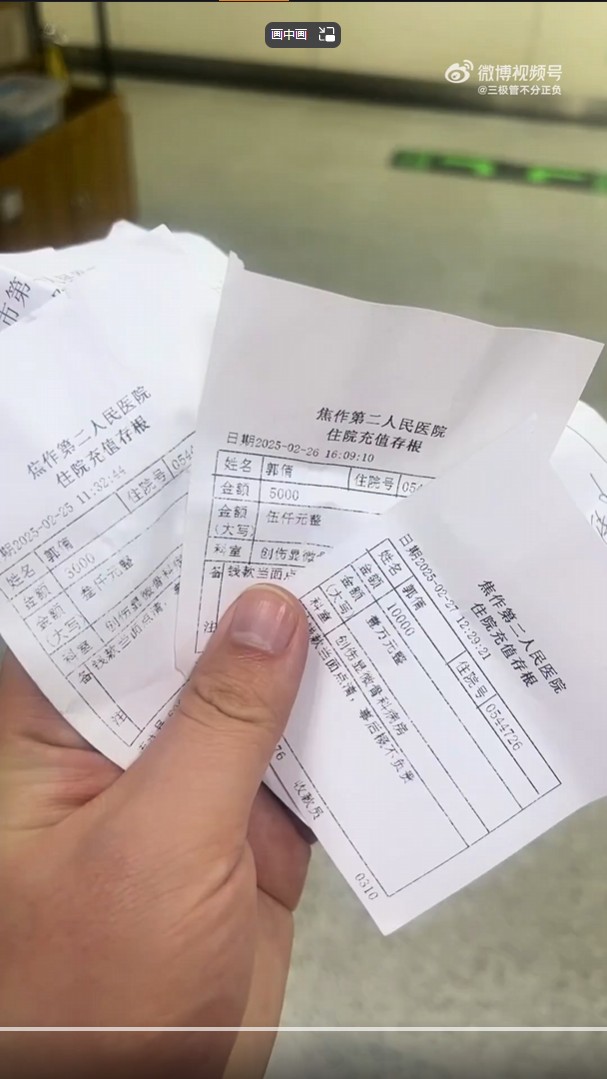 画中画
微博视频号
@三极管不分正负
市第
焦作第二人民医院
住院充值存根
期2025-02-25 11:32:44
姓名 郭倩 住院号 0544
金额 3000
金额 叁仟元整
(大写)
科室 创伤显微骨科
备 钱款当面点清，
注
焦作第二人民医院
住院充值存根
日期2025-02-26 16:09:10
姓名 郭倩 住院号 054
金额 5000
金额 伍仟元整
(大写)
科室 创伤显微
备 钱款当面点
注
焦作第二人民医院
住院充值存根
日期2025-02-27 12:29:21
姓名 郭倩 住院号 0544726
金额 10000
金额 壹万元整
(大写)
科室 创伤显微骨科病房
钱款当面点清，事后概不负责
76 收款员 0310